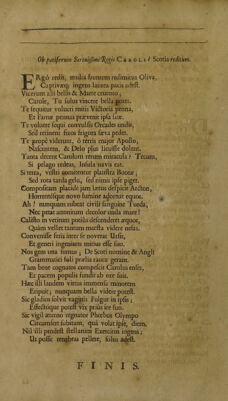 Ob paciferum Serenissimi Regis CAROLI è Scotia reditum.
ERgò redit, mulsa frontem redimitus Oliva,
Captivamq; ingens laurea pacis adest.
Vicerunt alii bellis & Marte cruento,
Carole, Tu solus vincere bella potes.
Te sequitur volucri mitis Victoria penna,
Et Famæ pennas prævenit ipsa suæ.
Te volante sequi convulsis Orcades undis,
Sed retinent fixos frigora sæva pedes.
Te propè viderunt, ô terris major Apollo,
Nascentem, & Delo plus licuisse dolent.
Tanta decent Carolum rerum miracula! Tecum,
Si pelago redeas, Insula navis eat.
Si terra, vestri comitentur plaustra Bootæ;
Sed rota tarda gelu, sed nimis ipse piger.
Compositam placidè jam lætus despicit Arcton,
Horrentésque novo lumine adornat equos.
Ah! nunquam rubeat civili sanguine Tueda,
Nec petat attonitum decolor unda mare!
Callisto in vetitum potiùs descenderet æquor,
Quàm vellet tantum mæsta videre nefas.
Convenisse feris inter se noverat Ursis,
Et generi ingenium mitius esse suo.
Nos gens una sumus; De Scoti nomine & Angli
Grammatici soli prælia rauca gerant.
Tam bene cognatos compescit Carolus enses,
Et pacem populis fundat ab ore suis.
Hæc illi laudem virtus immensa minorem
Eripuit; nunquam bella videre potest.
Sic gladios solvit vaginis Fulgur in ipsis;
Effectusque potest vix prius ire suos.
Sic vigil æterno regnator Phœbus Olympo
Circumfert subitam, quà volat ipse, diem,
Nil illi prodest stellarum Exercitus ingens;
Ut posset tenebras pellere, solus adest.
FINIS.